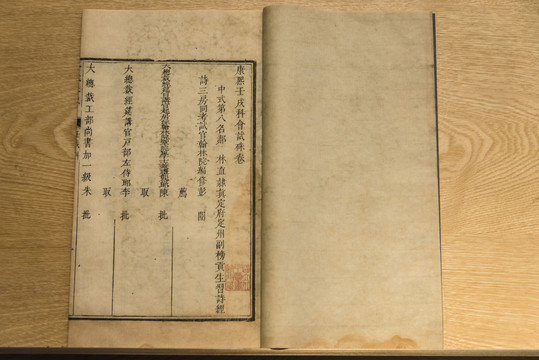 康熙壬戌科會試硃卷
中式第八名郝林直隸真定府定州副榜貢生習詩經
詩三房同考試官翰林院編修彭 閱
薦
陳 批
取
大總裁經筵講官戶部左侍郎李 批
取
大總裁工部尚書加一級朱 批